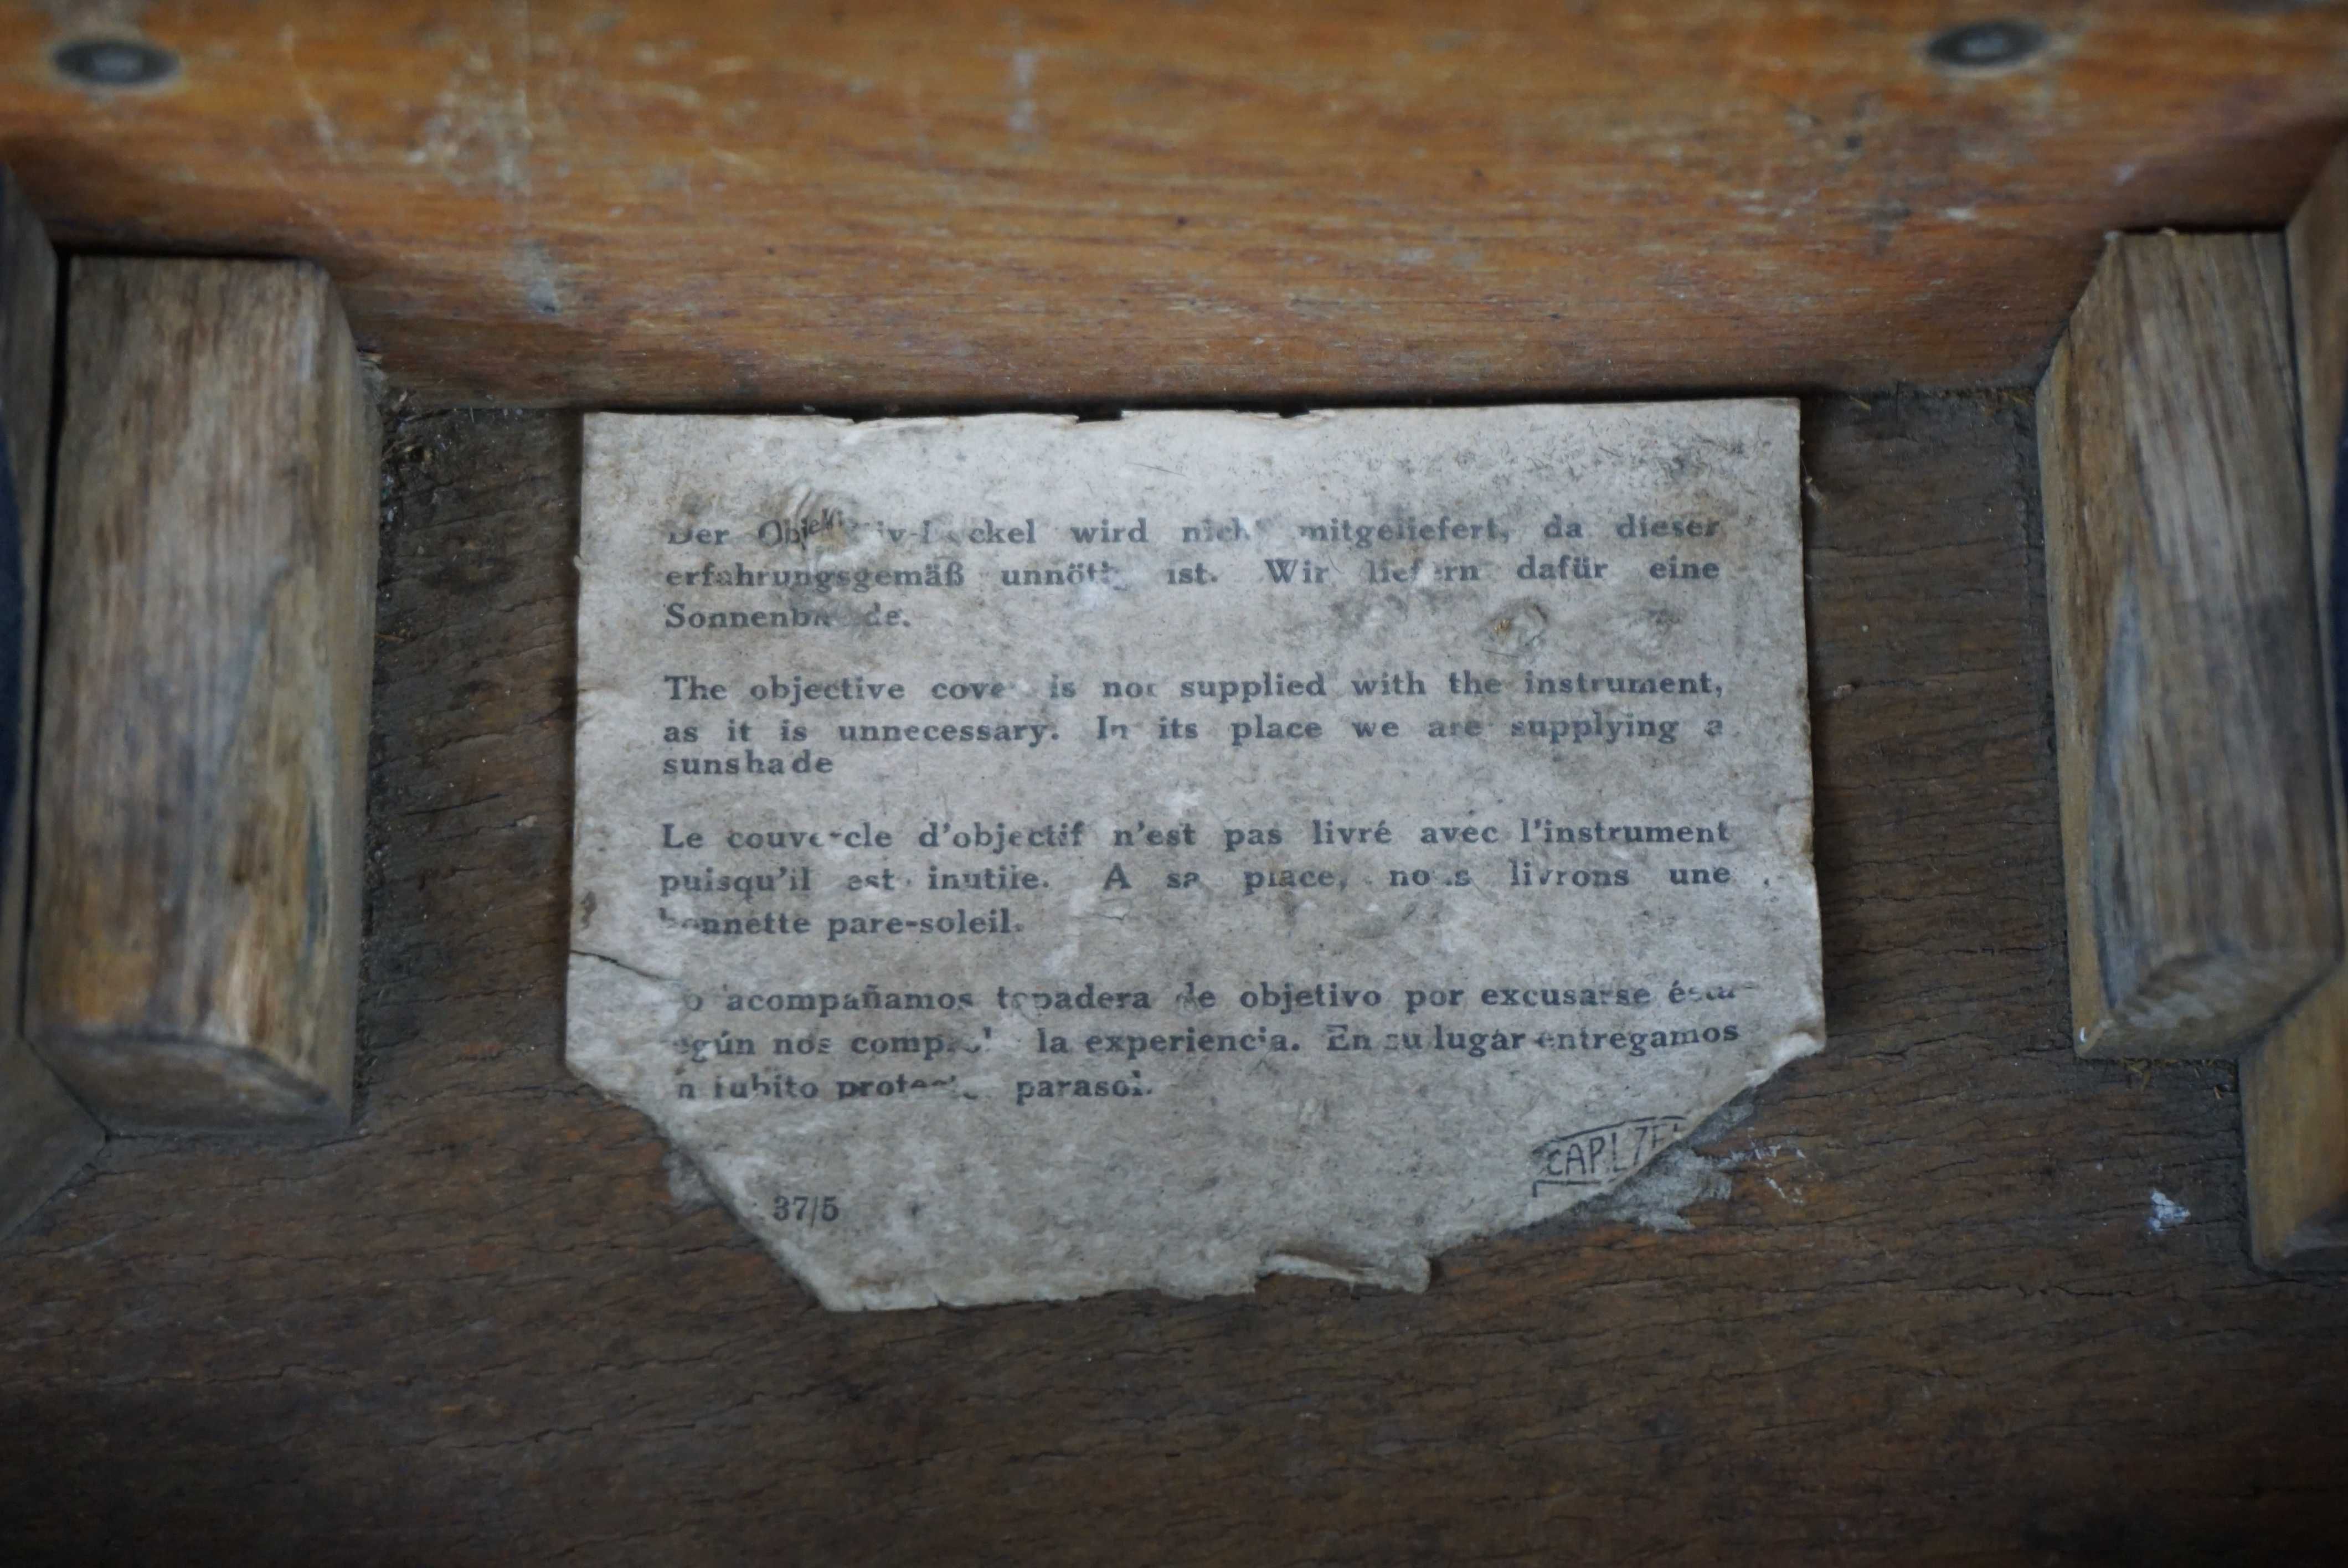 Der wird mitgeliefert, da dieser
erfahrungsgemäß ist. Wir liefern dafür eine
The objective cover is not supplied with the instrument,
as it is unnecessary. In its place we are supplying a
sunshade
Le couvercle d'objectif n'est pas livré avec l'instrument
puisqu'il est inutile. A sa place, nous livrons une
bonnette pare-soleil.
acompañamos tapadera de objetivo por excusarse
nos la experiencia. En su lugar entregamos
parasol.
37/5